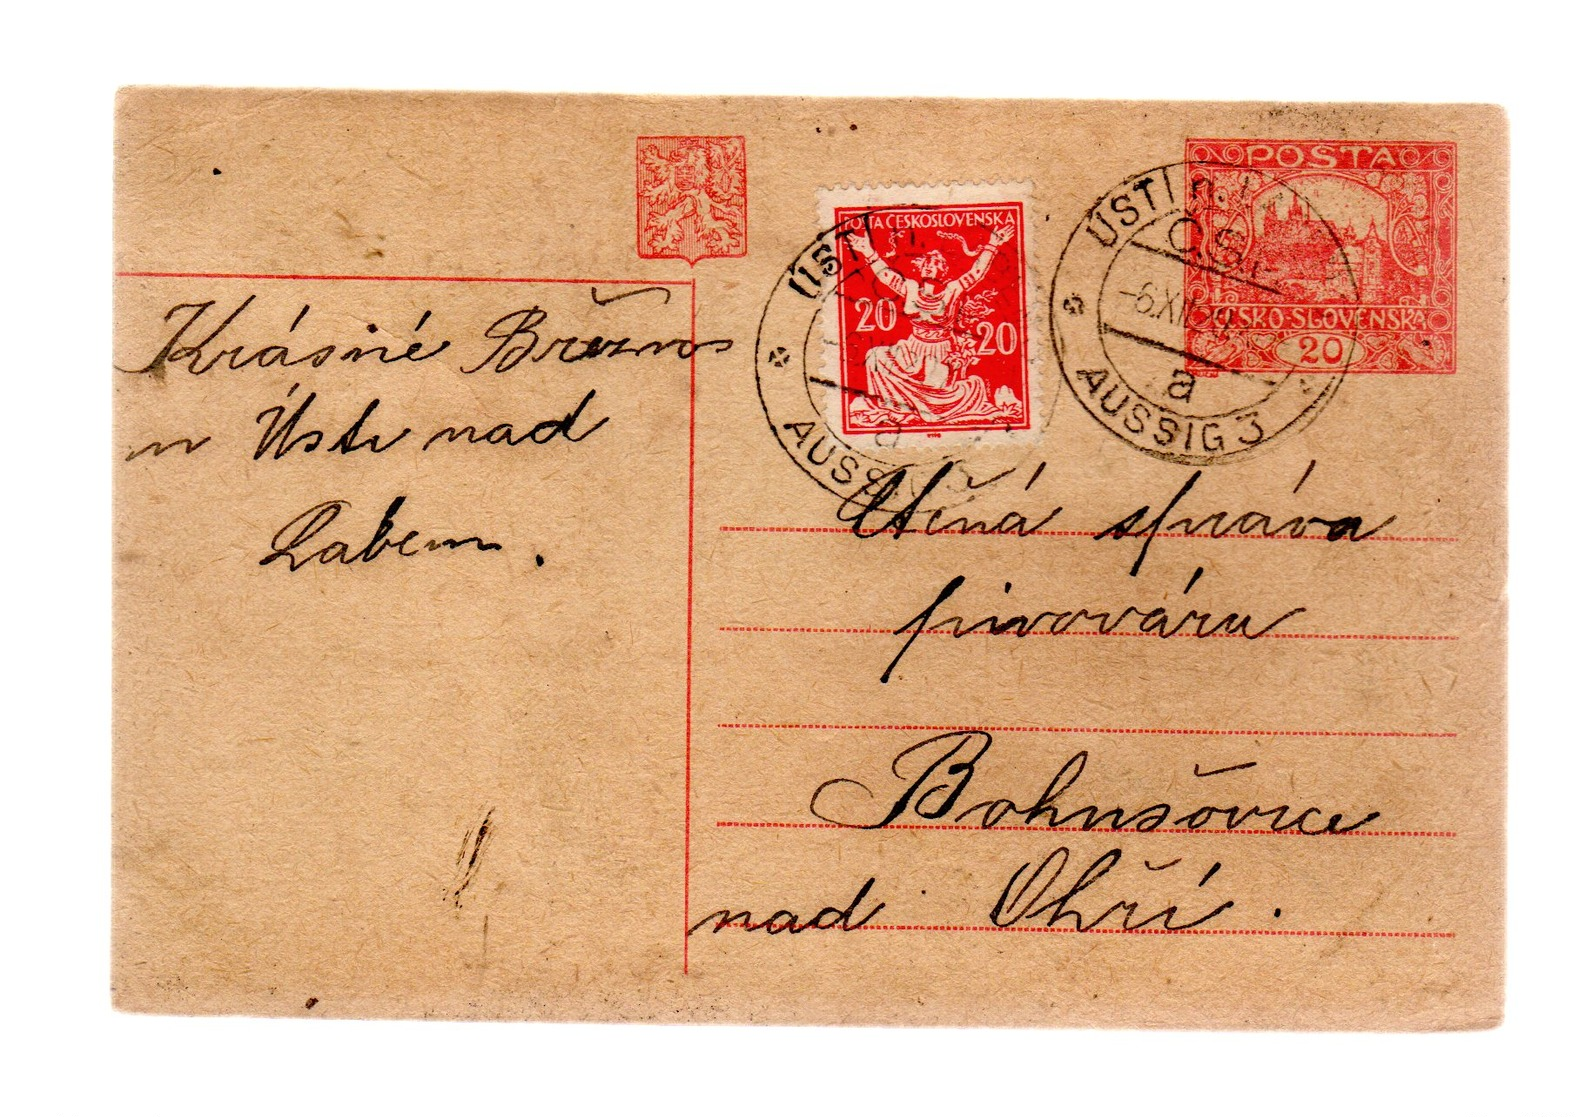 POSTA
ČESKO-SLOVENSKÁ
20
POŠTA ČESKOSLOVENSKÁ
20 20
ÚSTÍ n. L.
Č.S.R.
-6.XII.20
a
AUSSIG 3
ÚSTÍ n.
a
AUSSIG 3
Krásné Březno
n Ústí nad
Labem.
Ctěná správa
pivováru
Bohušovice
nad Ohří.